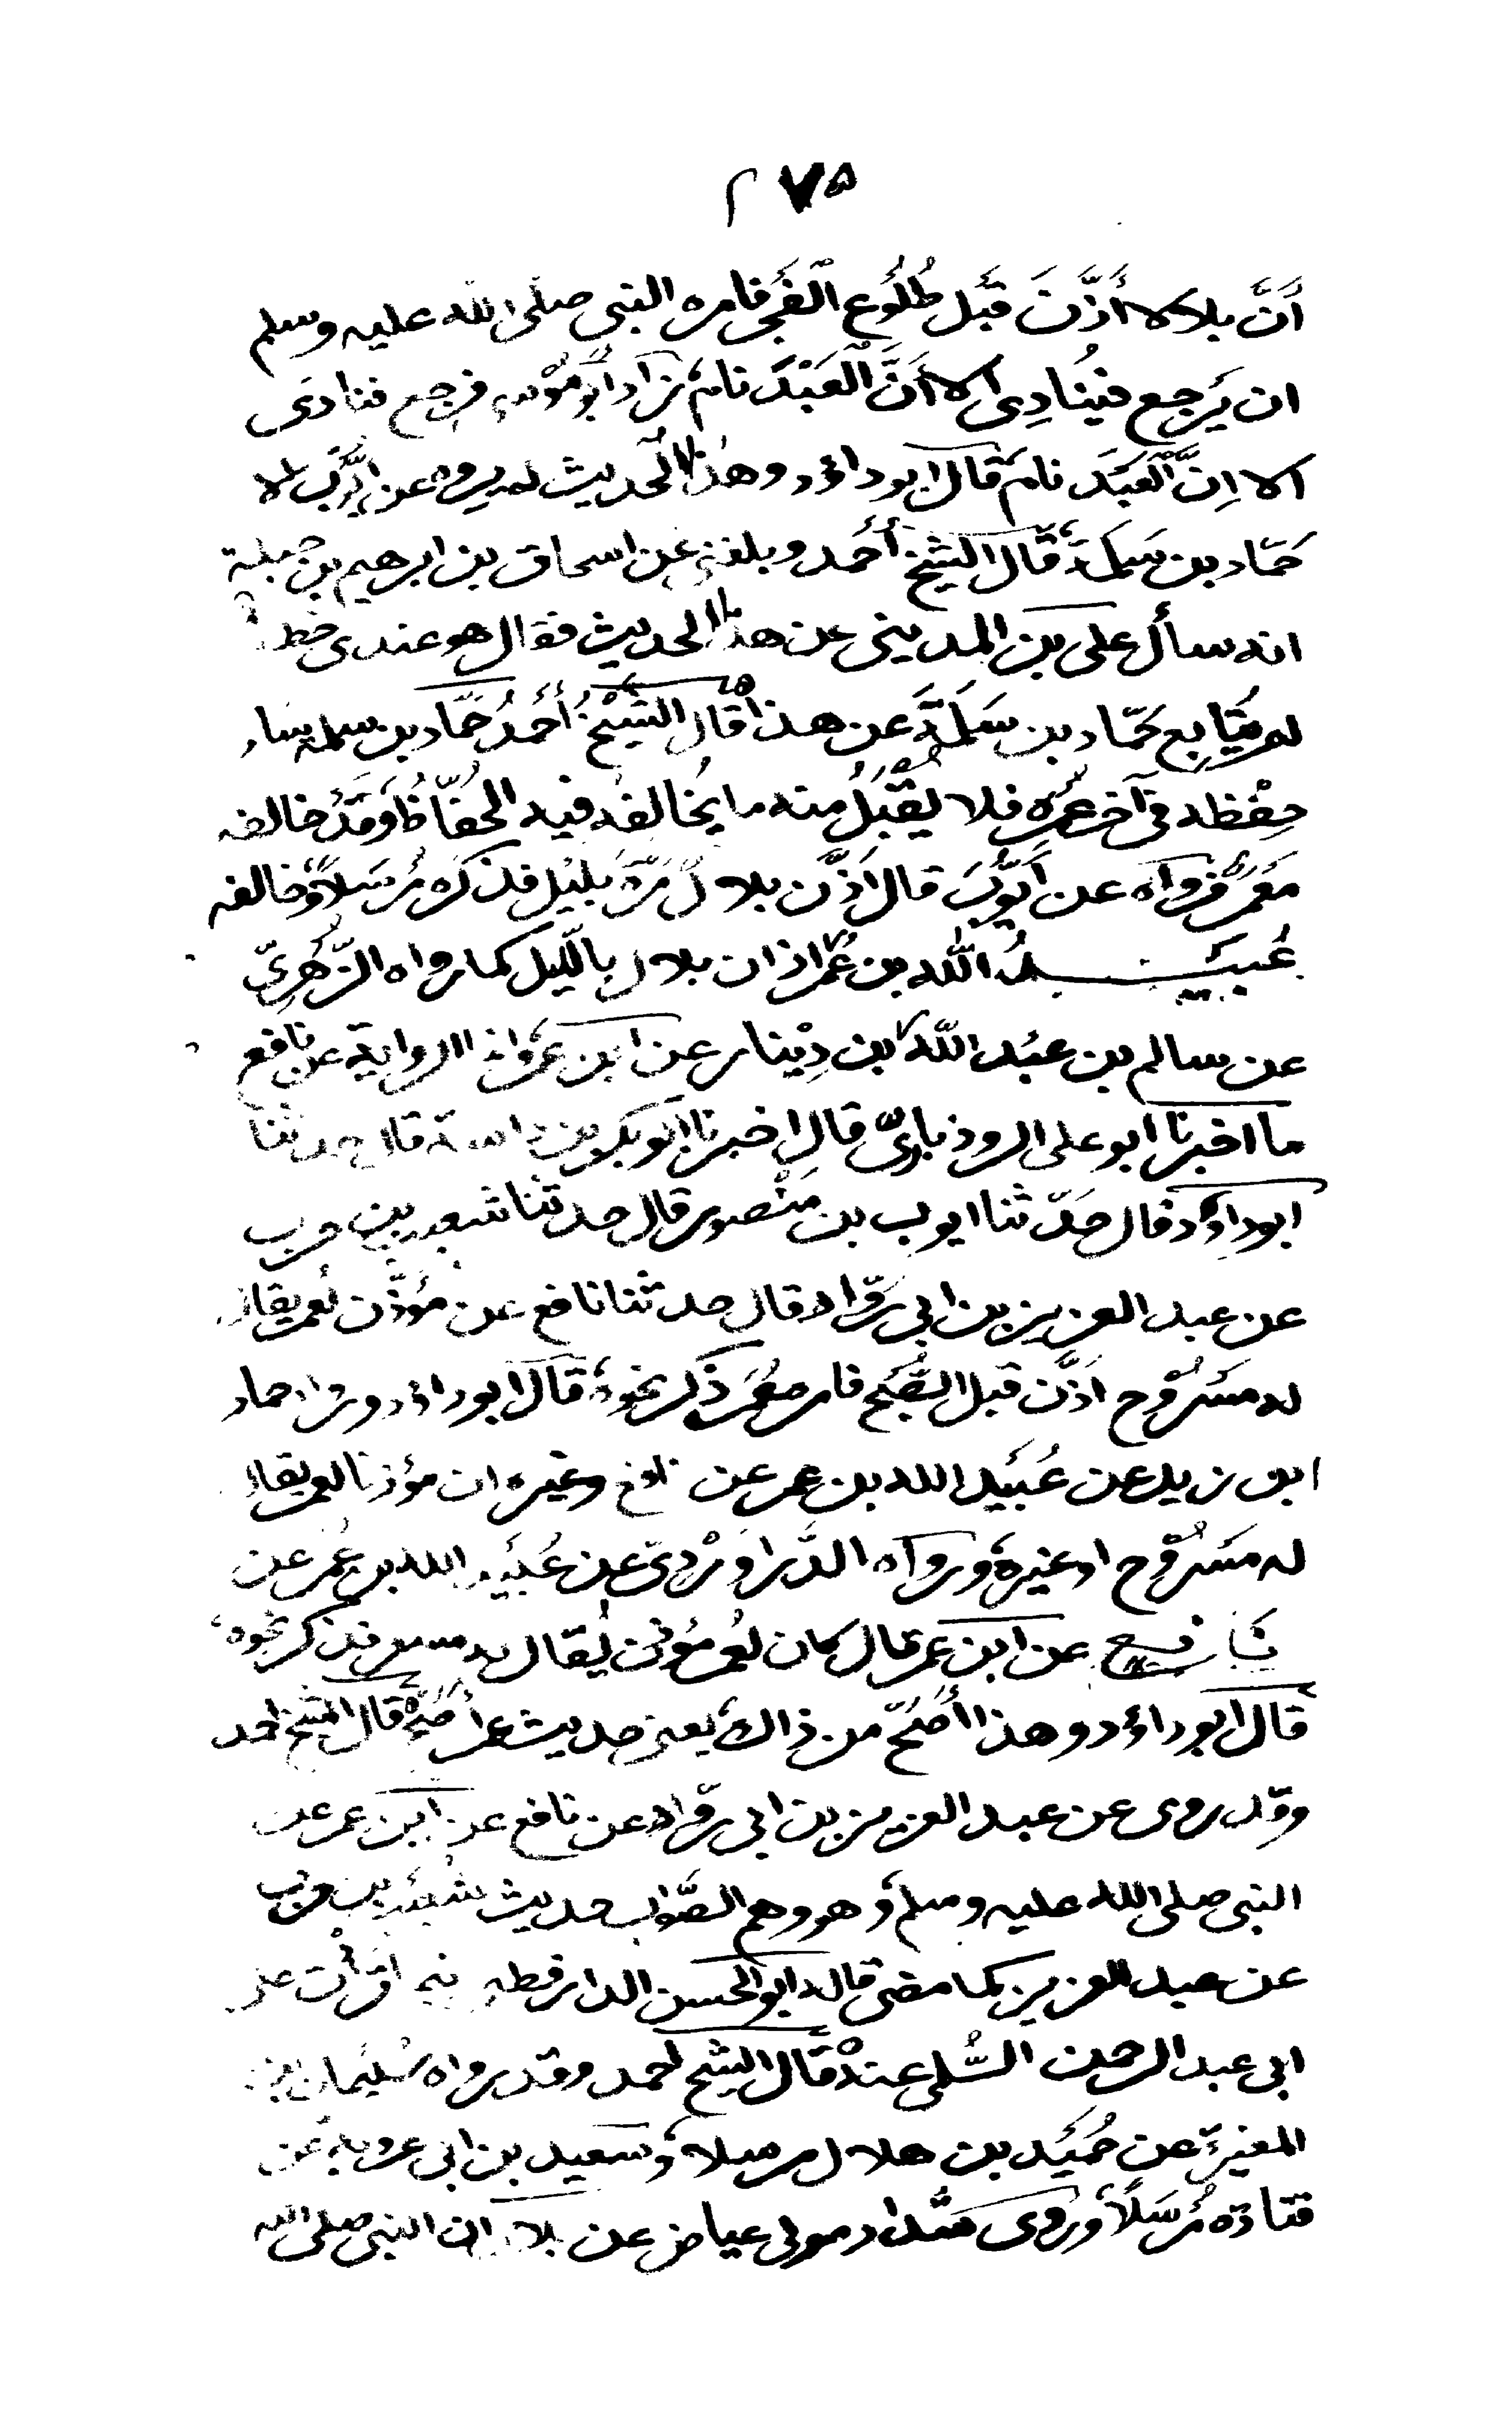 ٢٧٥
أَنَّ بلالا أَذَّنَ قَبْل طُلُوع الْفَجْر فامره النبی صلی الله علیه وسلم
ان يَرجع فيُنَادِی الا أَنَّ الْعَبْدَ نام زاد ابو موسی فرجع فنادی
الا اِنَّ الْعَبْدَ نام قال ابو داؤد وهذا الحديث لم يروه عن ايُّوب الا
حَمّاد بن سَلمَة قال الشيخ أحْمد وبلغنی عن اسحاق بن ابرهيم بن جبلة
انه سأل علی بن المدينی عن هذا الحديث فقال هو عندی خطأ
لم يُتَابِع حَمّاد بن سَلَمَة عن هذا قال الشيْخُ أَحْمَدُ حَمّاد بن سلمة ساء
حِفْظه فی آخر عُمُرِه فلا يُقْبَلُ منه ما يُخَالفُه فيه الحُفّاظُ وَقَدْ خالفه
مَعْمَرٌ فرواه عن اَيُّوبَ قال اَذَّن بلال مَرّة بلَيْل فذكره مُرْسَلاً وخالفه
عُبَيْدُ الله بن عُمَر اذان بلال بالّليل كما رواه الزُّهْرِیّ
عن سالم بن عبْد الله بن دِيْنار عن ابن عمر الرواية عن نافع
ما اخبرنا ابو علی الروذباریّ قال اخبرنا ابو بكر بن داسة قال حدثنا
ابو داؤد قال حَدّثنا ايوب بن مَنْصور قال حدثنا شعيب بن حرب
عن عبد العزيز بن ابی رَوّاد قال حدثنا نافع عن مؤذّن لعمر يقال
له مَسْرُوْح اَذَّن قبل الصُّبْح فامره عُمَر ذكر نحوه قال ابو داؤد ورواه حماد
ابن زيد عن عُبَيْد الله بن عمر عن نافع وغيره ان مؤذنا لعمر يقال
له مَسْرُوْح او غيره ورواه الدَّرَاوَرْدیّ عن عُبَيْد الله بن عُمَر عن
نَافع عن ابن عمر قال كان لعُمر مؤذن يُقال له مسعود فذكر نحوه
قال ابو داؤد وهذا أصَحّ من ذالك يعنی حديث عمر أصح قال الشيخ احمد
وقد روی عن عبد العزيز بن ابی روّاد عن نافع عن ابن عمر عن
النبی صلی الله عليه وسلم وهو وهم الصَّوَاب حديث شُعَيْب بن حرب
عن عبد العزيز كما مضی قاله ابو الحسن الدارقطنی فيما قرأت علی
ابی عبد الرحمن السُّلمی عنه قال الشيخ احمد وقد رواه سُليمان بن
المغيرة عن حُمَيْد بن هلال مرسلا وسعيد بن ابی عروبة عن
قتادة مُرْسَلاً وروی شَدّاد مولی عياض عن بلال ان النبی صلی الله